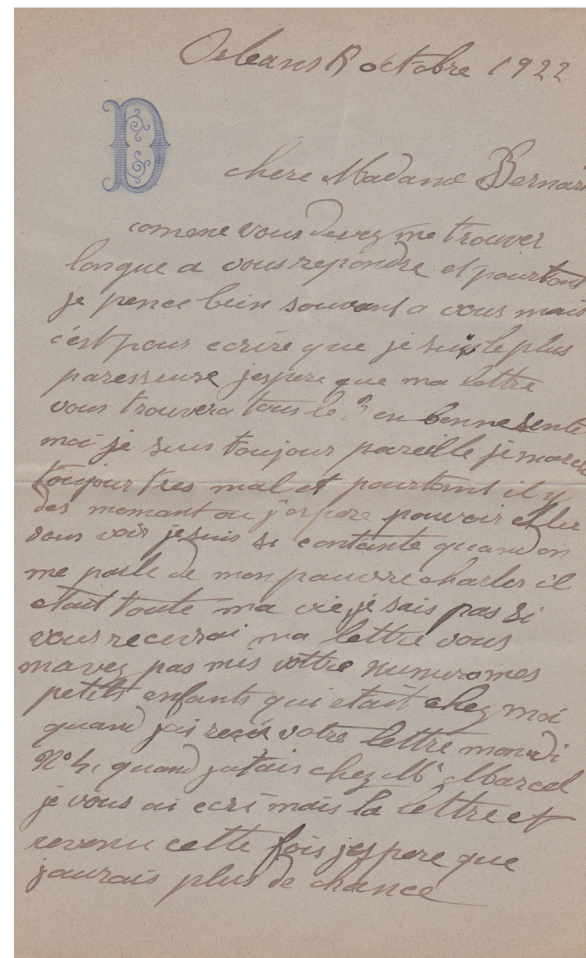 Orleans octobre 1922
D
chere Madame Bernard
comme vous devez me trouver
longue a vous repondre et pourtant
je pence bien souvant a vous mais
c'est pour ecrire que je suis le plus
paresseuse jespere que ma lettre
vous trouvera tous le 2 en bonne sente
moi je suis toujour pareille je marche
toujour tres mal et pourtant il y
des momant ou j'espere pouvoir aller
vous voir je suis si contante quand on
me parle de mon pauvre charles il
etait toute ma vie je sais pas si
vous recevrai ma lettre vous
mavez pas mis vottre numuro mes
petits enfants qui etait chez moi
quand jai reçu votre lettre mon di
No 4, quand jatais chez Mr Marcel
je vous ai ecri mais la lettre et
revenu cette fois jespere que
jaurais plus de chance